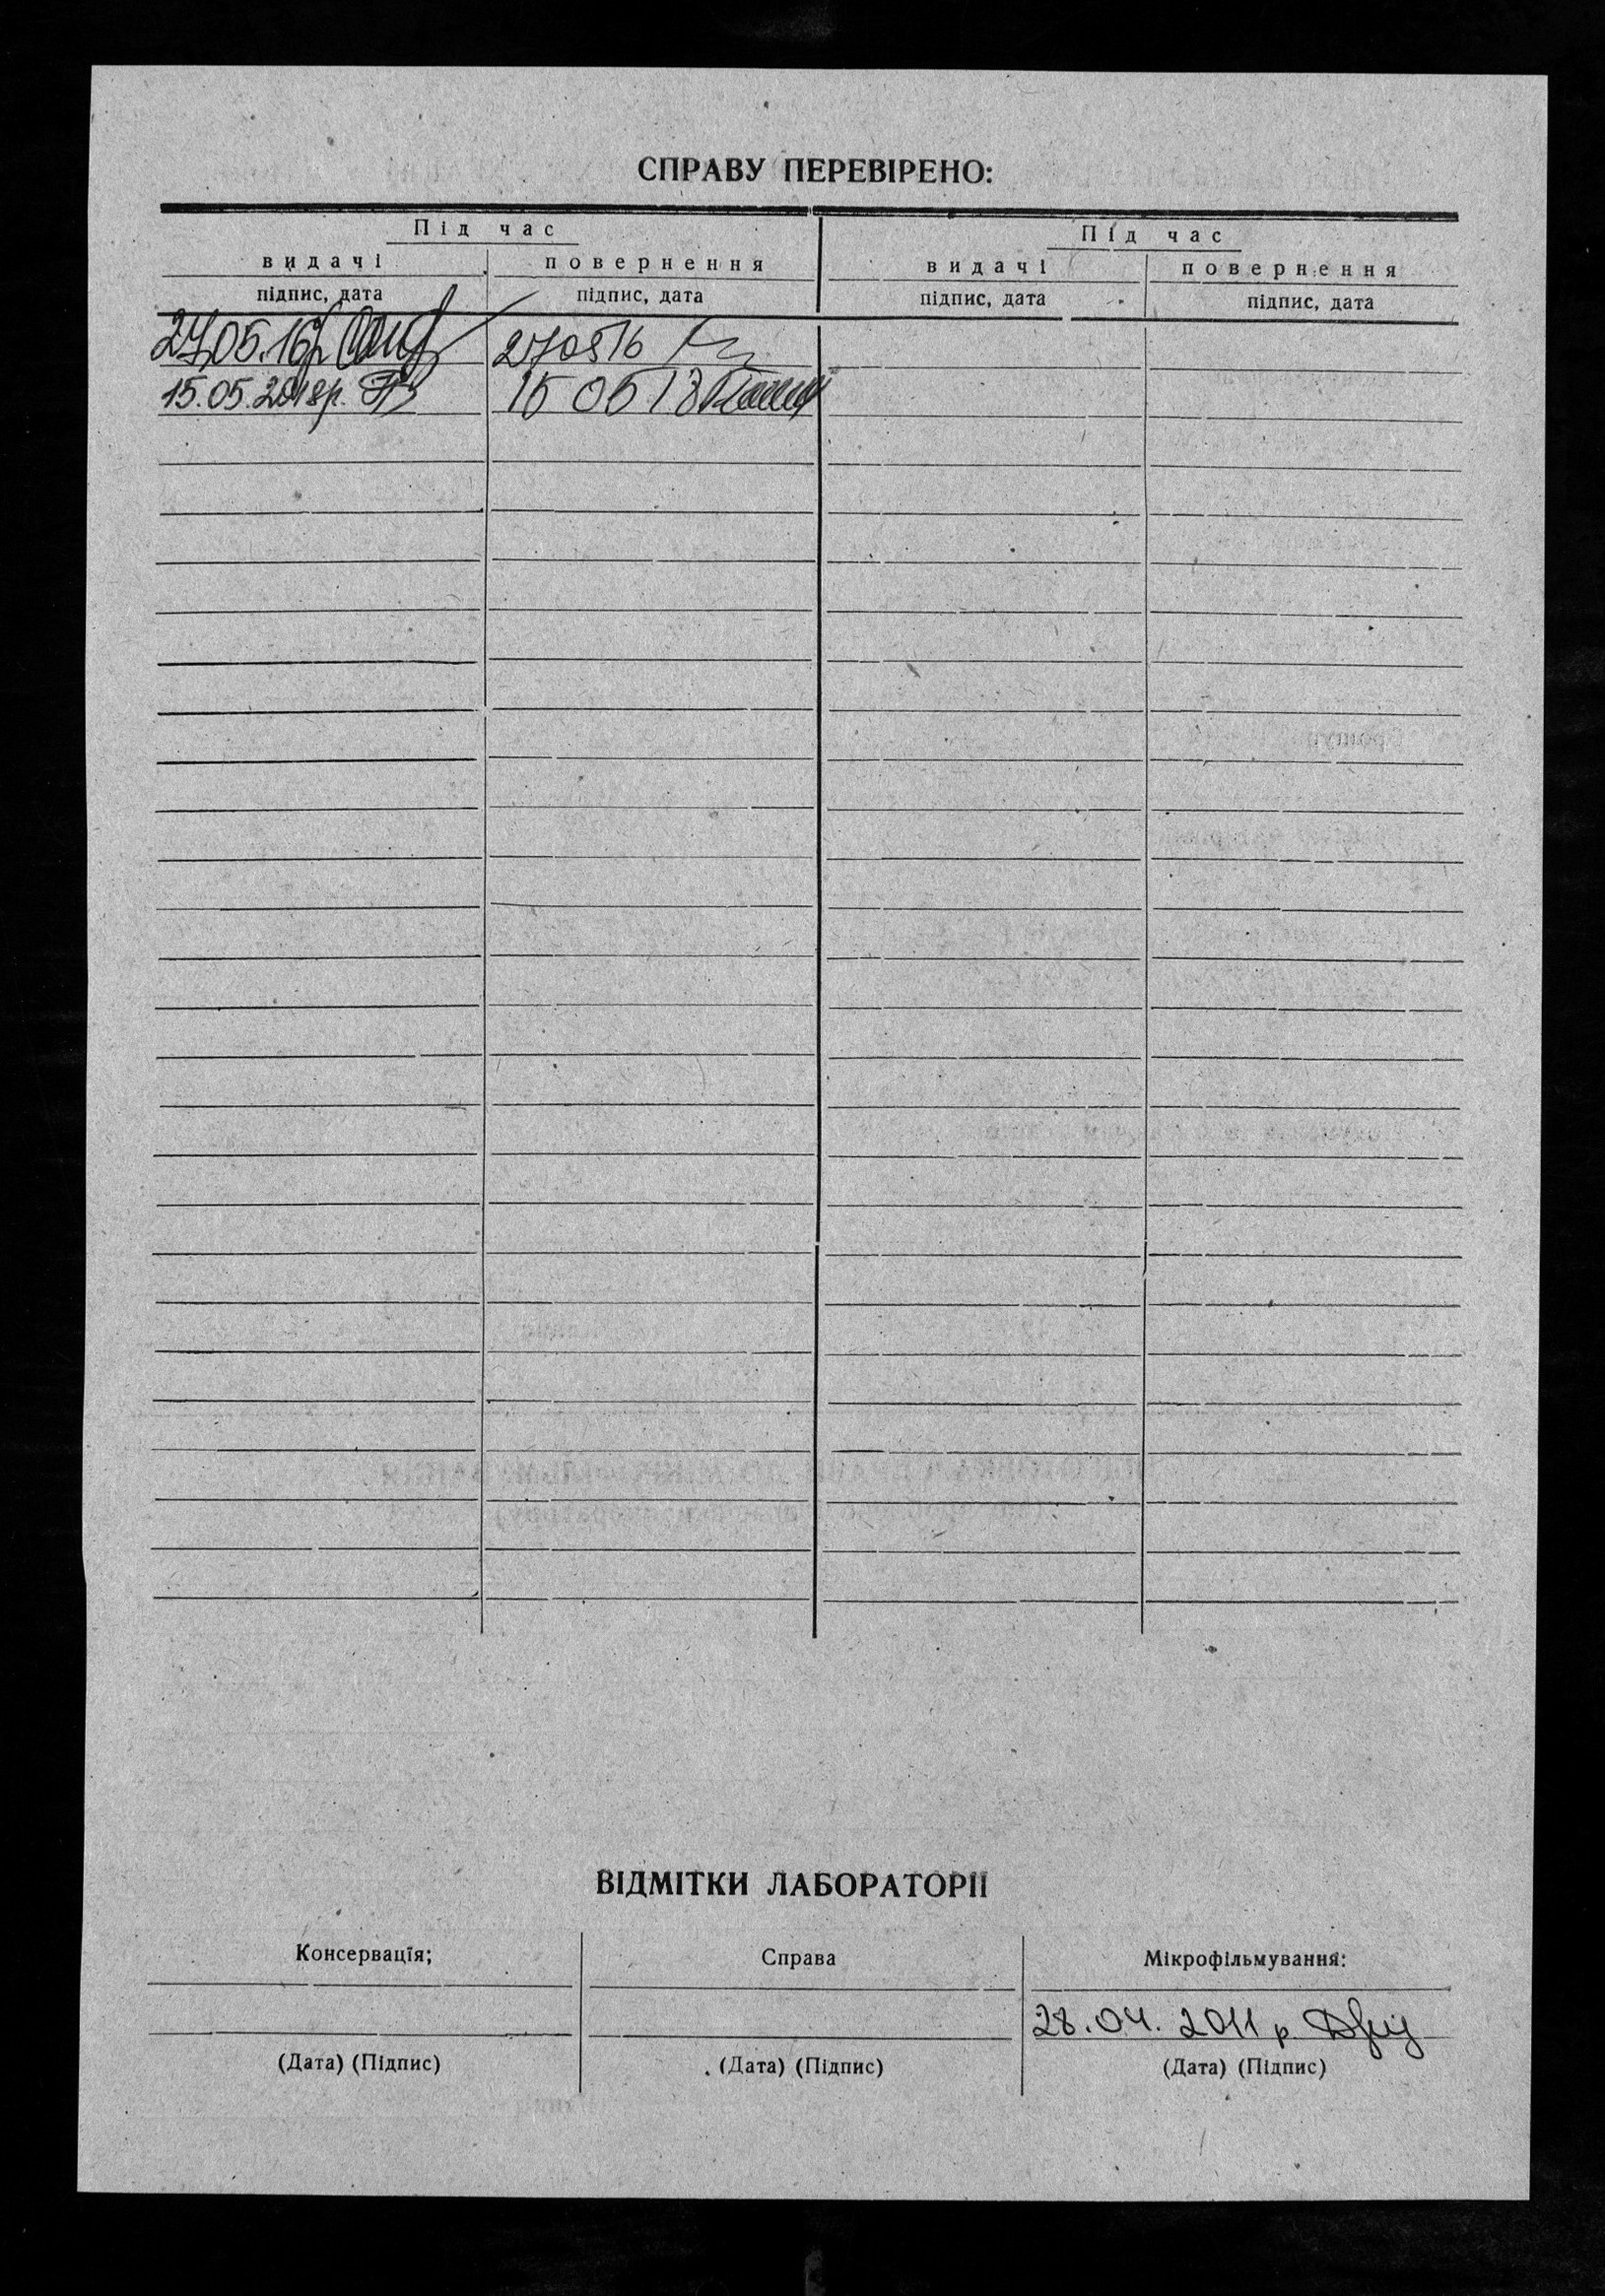 СПРАВУ ПЕРЕВІРЕНО:
Під час Під час
видачі повернення видачі повернення
підпис, дата підпис, дата підпис, дата підпис, дата
27.05.16р 270516
15.05.2018р. 15 05 18
ВІДМІТКИ ЛАБОРАТОРІІ
Консервація; Справа Мікрофільмування:
28.04.2011 р.
(Дата) (Підпис) (Дата) (Підпис) (Дата) (Підпис)